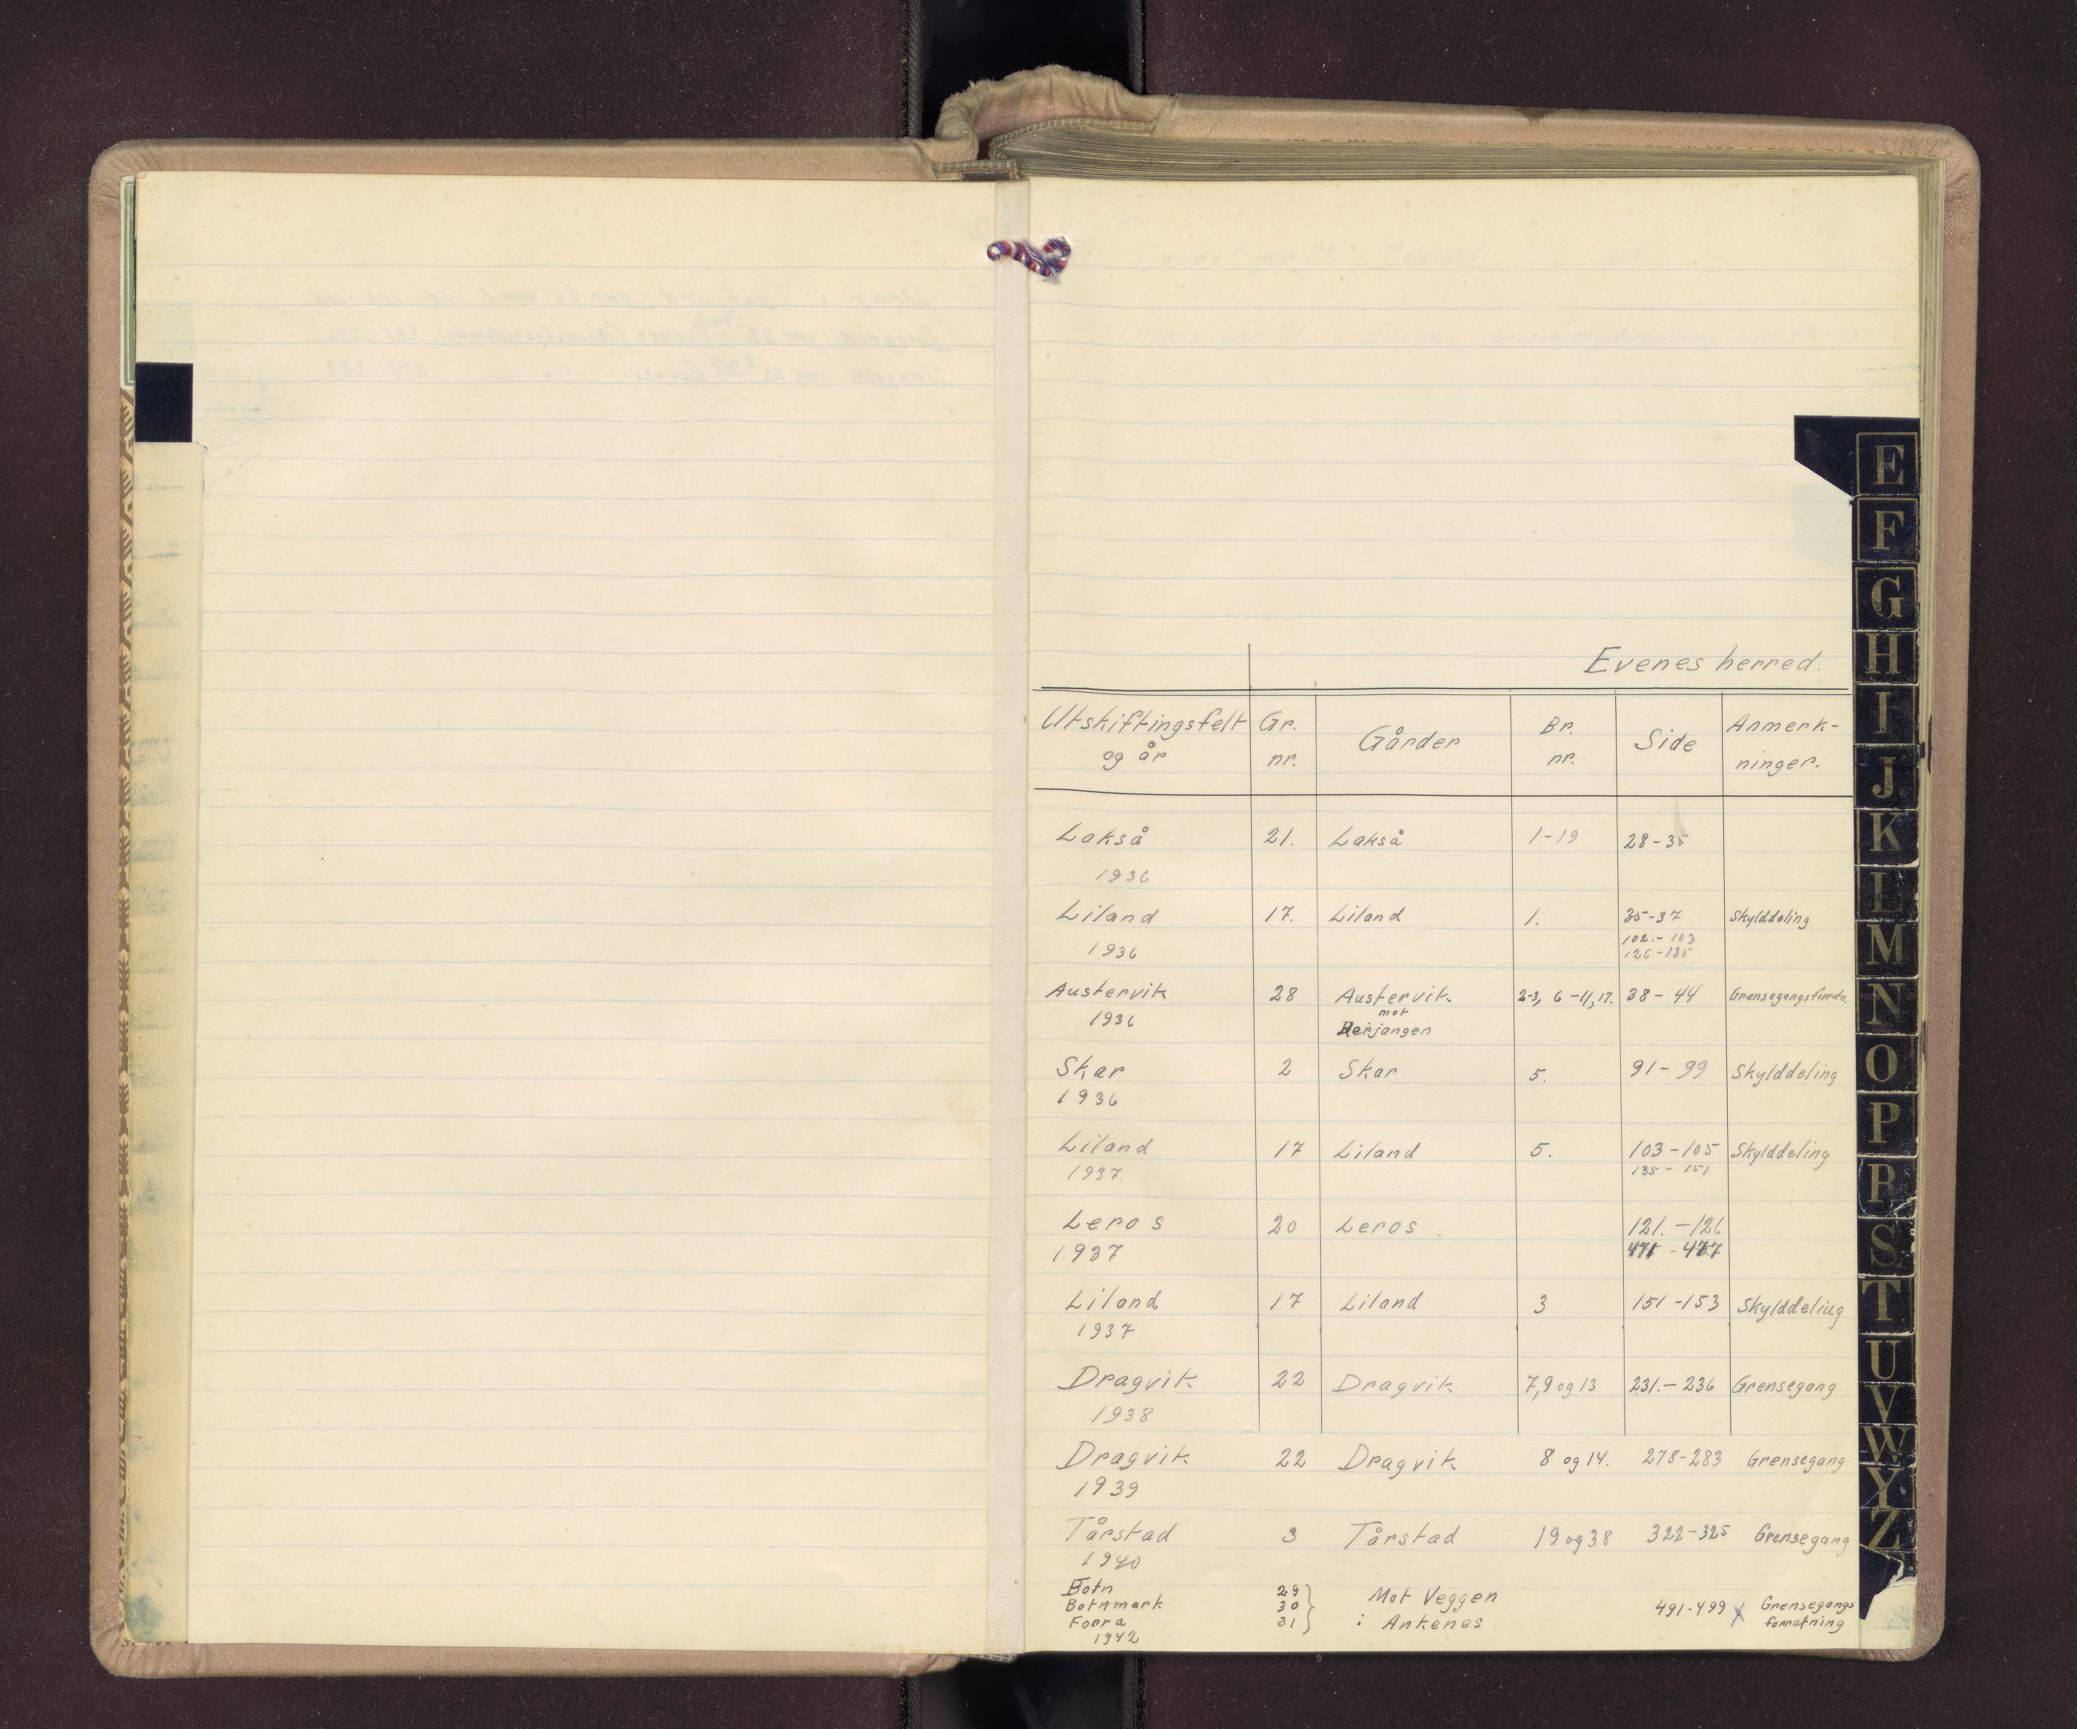 Evenes herred.
Utskiftingsfelt Gr. Gårder Br. Side Anmerk-
og år nr. nr. ninger.
Lakså 21. Lakså 1-19 28-35
1936
Liland 17. Liland 1. 35-37 Skylddeling
102.-103
1936 126-135
Austervik 28 Austervik 2-3, 6-11, 17. 38-44
mot
1936
Skar 2 Skar 5. 91-99 Skylddeling
1936
Liland 17 Liland 5. 103-105 Skylddeling
1937. 135-151
Leros 20 Leros 121.-126
1937 471-477
Liland 17 Liland 3 151-153 Skylddeling
1937
Dragvik 22 Dragvik 7,9 og 13 231.-236 Grensegang
1938
Dragvik 22 Dragvik 8 og 14. 278-283 Grensegang
1939
Tårstad 3 Tårstad 19 og 38 322-325 Grensegang
1940
Botn 29 Mot Veggen
Botnmark 30 491-499 Grensegangs
Forra 31 i Ankenes forretning
1942
E
F
G
H
I
J
K
L
M
N
O
P
R
S
T
U
V
W
Y
Z